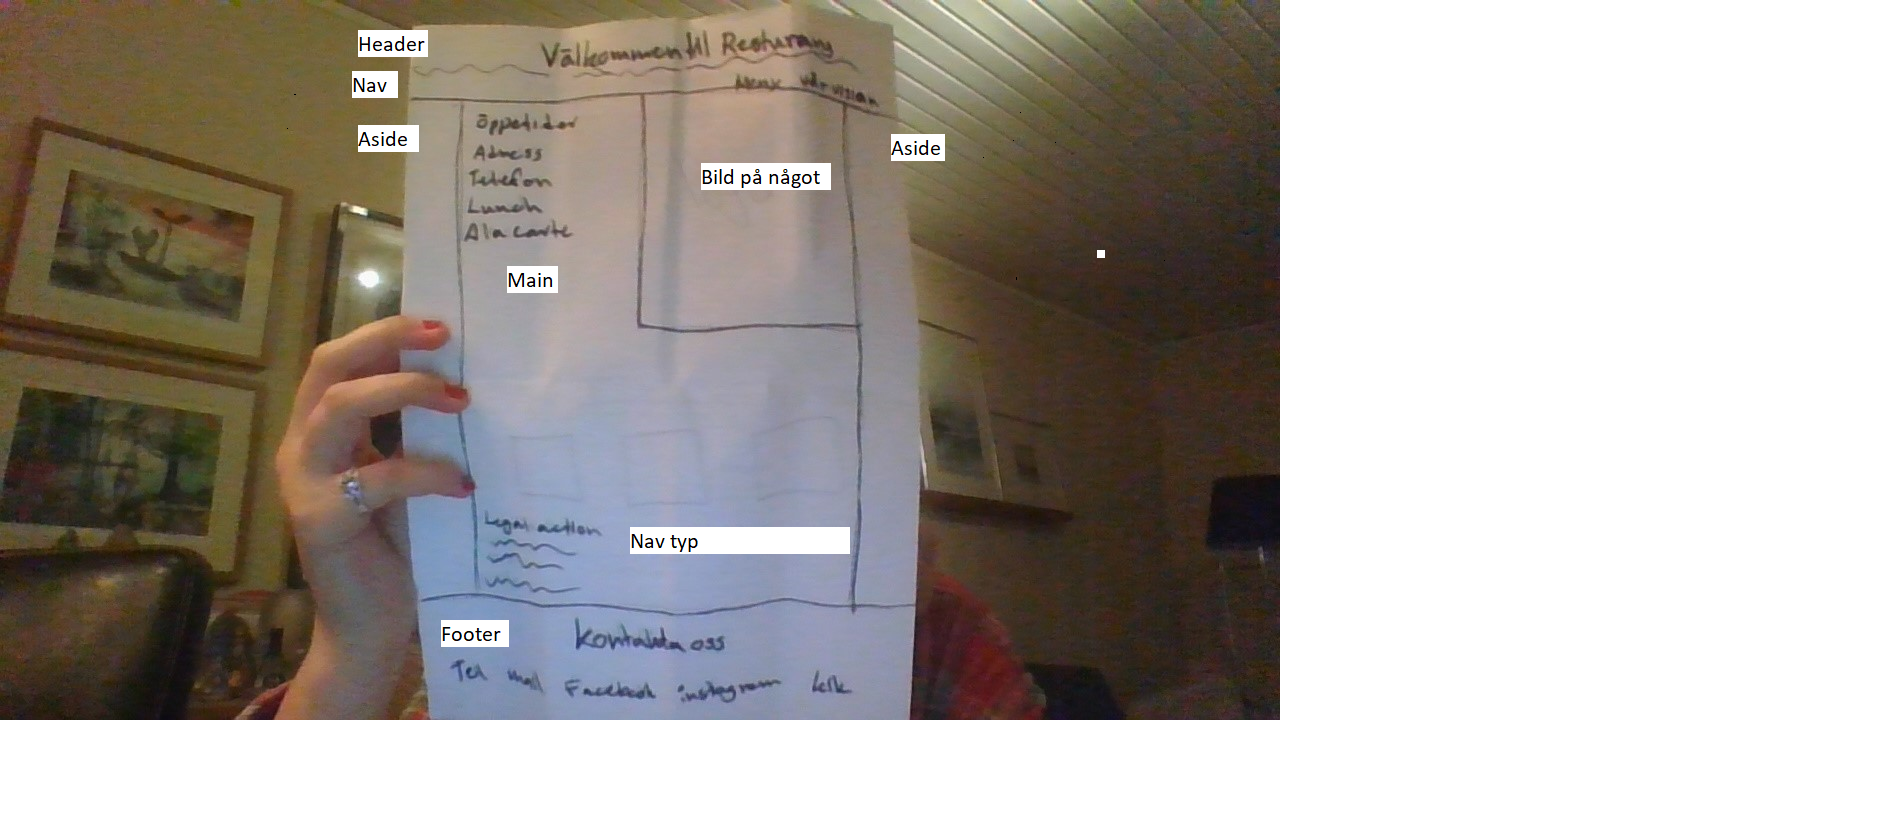 Header
Välkommen till Resturang
Nav
Meny Vår vision
Aside
Aside
Öppetider
Adress
Telefon
Lunch
A la carte
Bild på något
Main
Legal action
Nav typ
Footer
Kontakta oss
Tel mail Facebook instagram